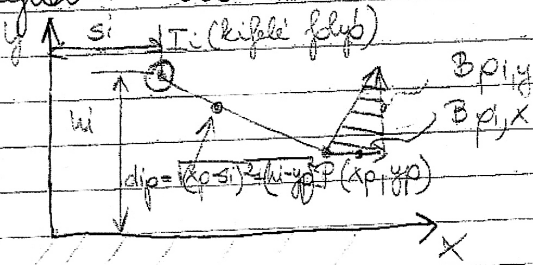 y
si
Ii (kifelé folyó)
Bpi,y
Bpi,x
hi
dip = √(xp-si)²+(hi-yp)² P (xp, yp)
x